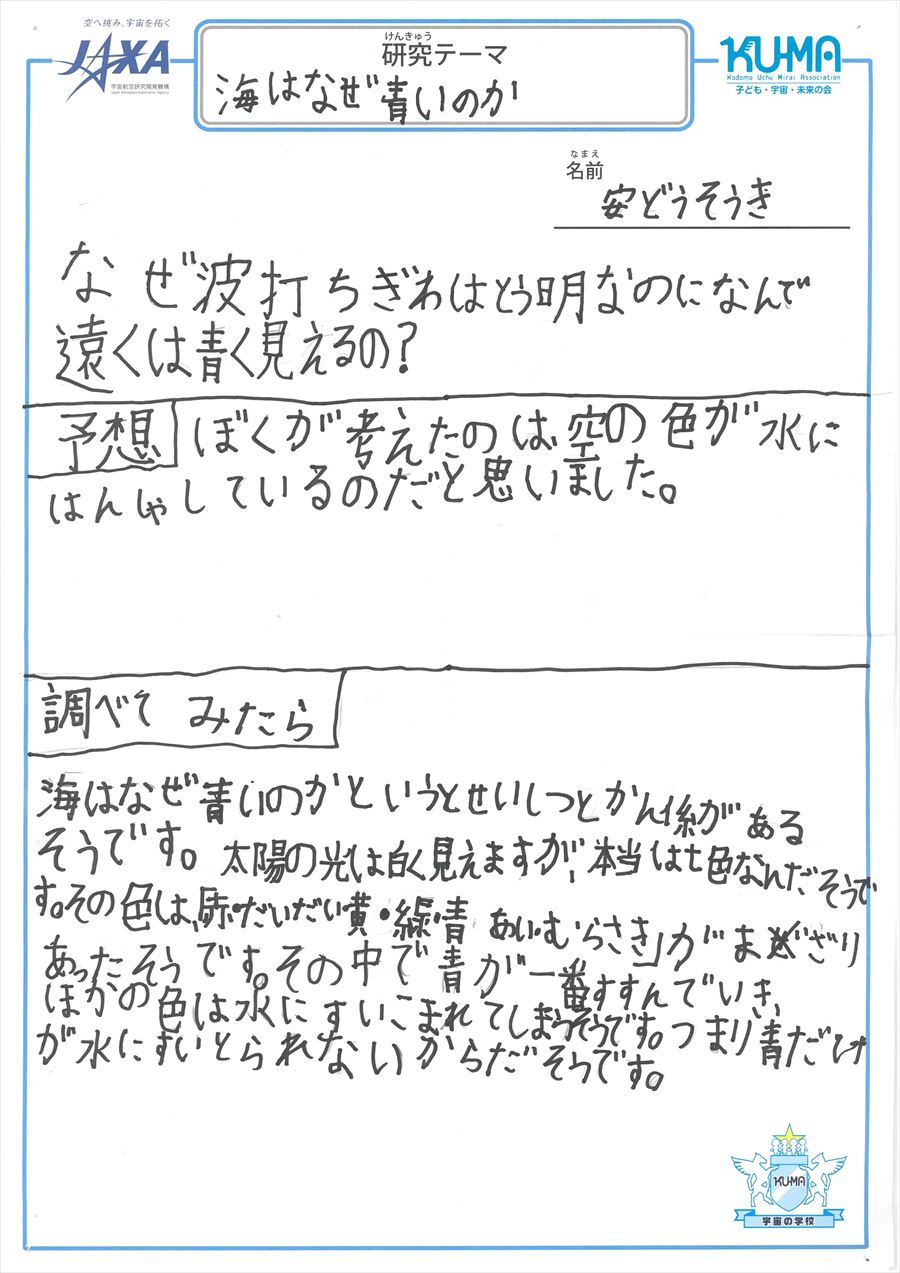 空へ挑み、宇宙を拓く
JAXA
宇宙航空研究開発機構
Japan Aerospace Exploration Agency
けんきゅう
研究テーマ
海はなぜ青いのか
KU-MA
Kodomo Uchu Mirai Association
子ども・宇宙・未来の会
なまえ
名前
安どうそうき
なぜ波打ちぎわはとう明なのになんで
遠くは青く見えるの?
予想 ぼくが考えたのは、空の色が水に
はんしゃしているのだと思いました。
調べて みたら
海はなぜ青いのかというとせいしつとかん係がある
そうです。太陽の光は白く見えますが、本当は七色なんだそうで
す。その色は、「赤・だいだい・黄・緑・青 あい・むらさき」がまざり
あったそうです。その中で青が一番すすんでいき、
ほかの色は水にすいこまれてしまうそうです。つまり青だけ
が水にすいとられないからだそうです。
KU-MA
宇宙の学校